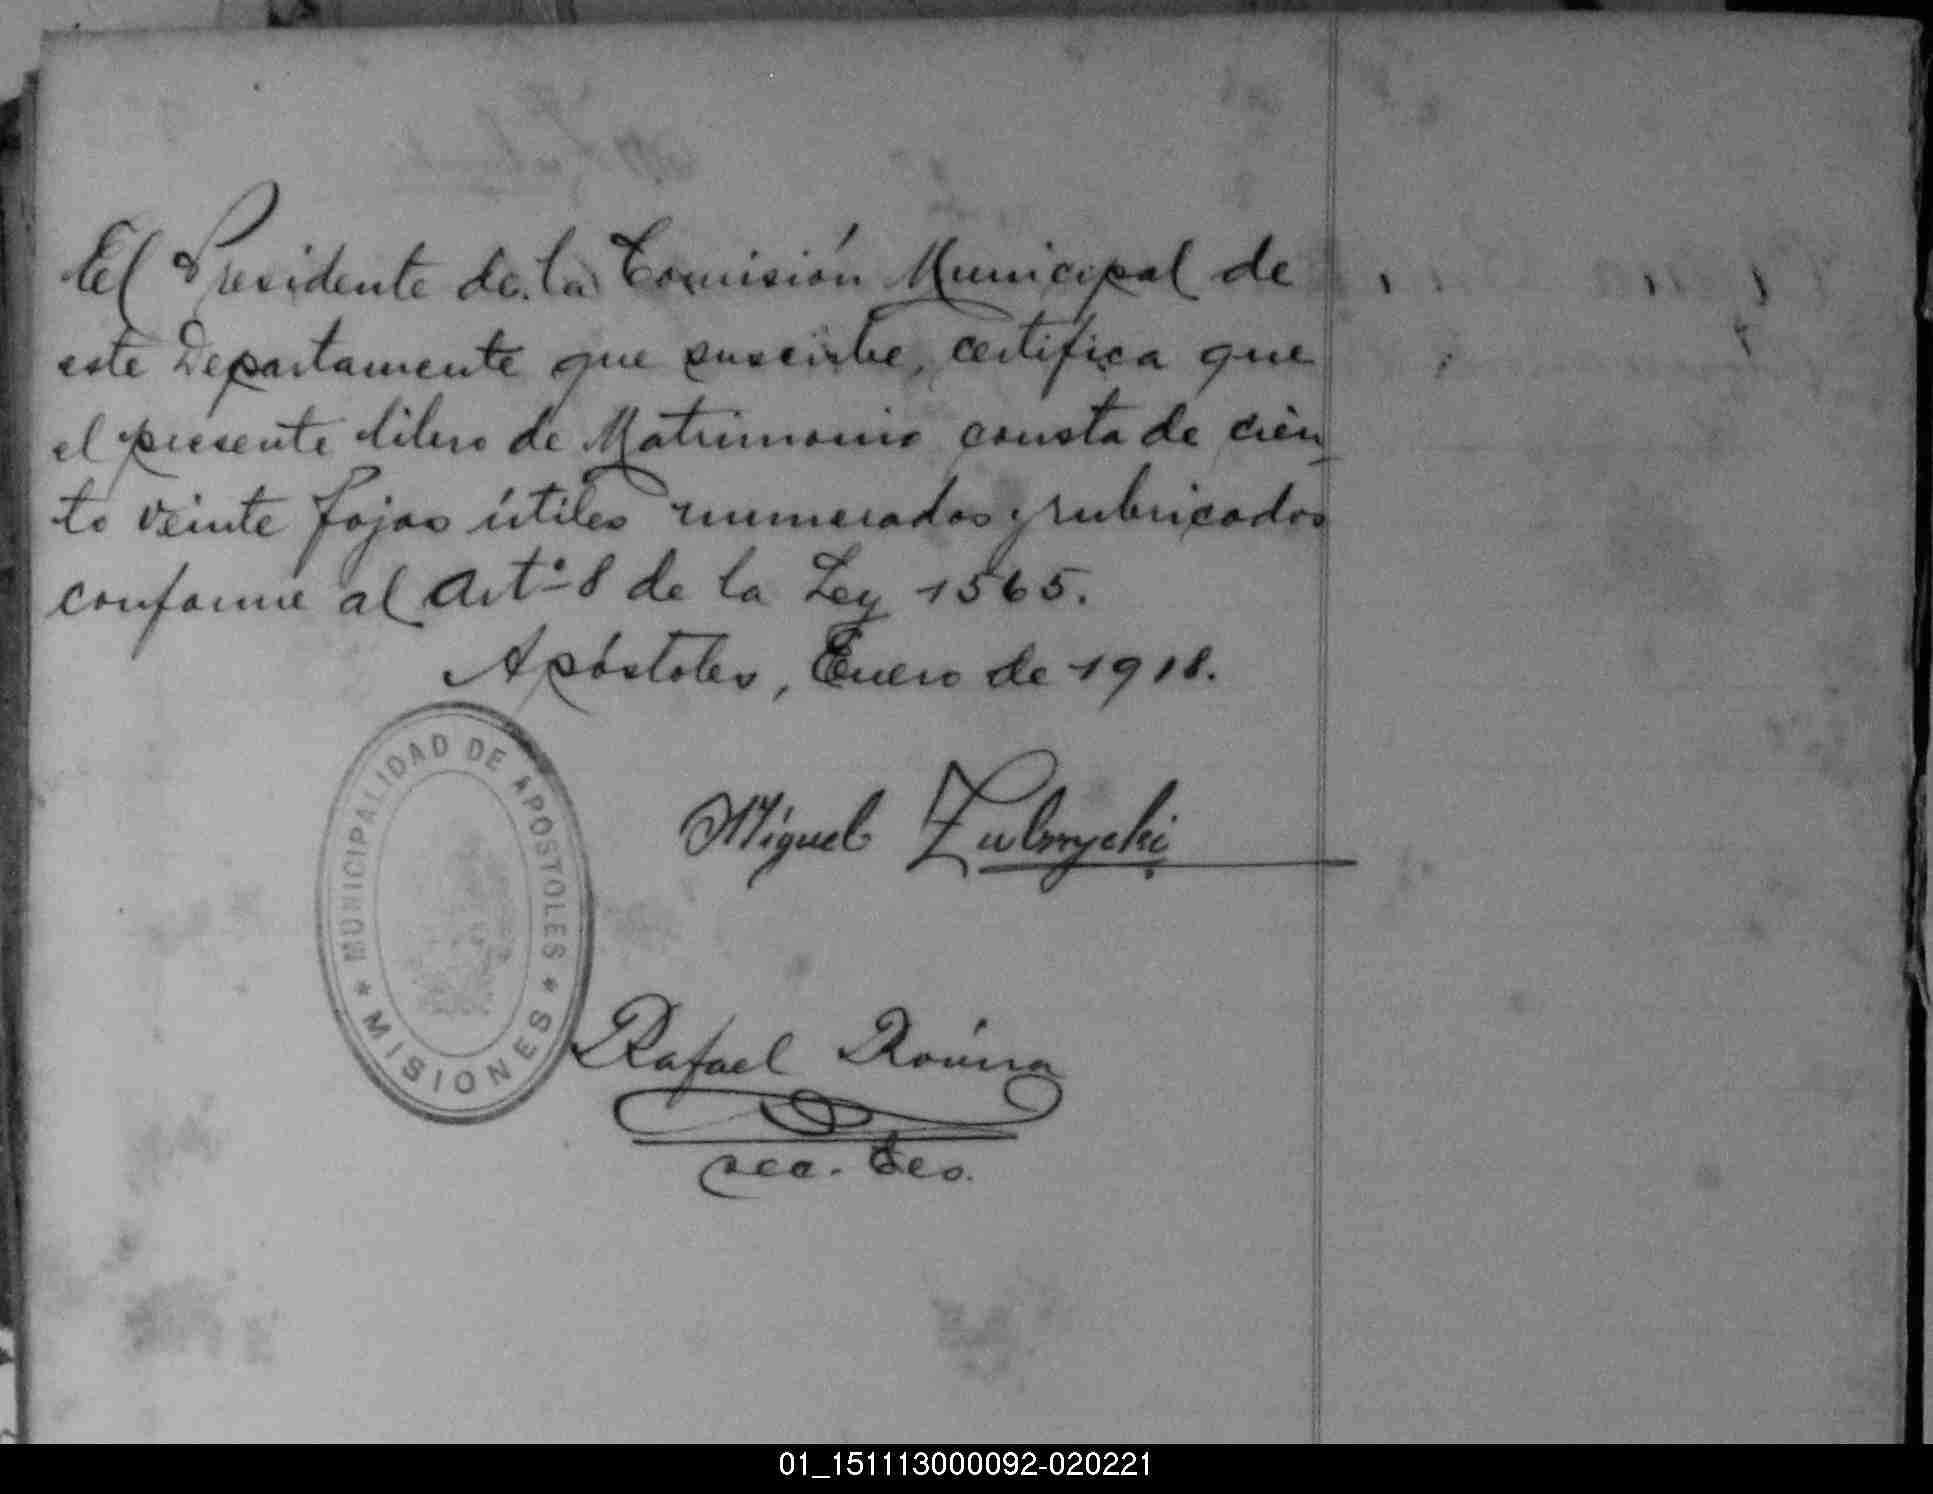 El Presidente de la Comisión Municipal de
este Departamente que suscribe, certifica que
el presente libro de Matrimonio consta de cien
to veinte fojas útiles numerados y rubricados
conforme al Artº 8 de la Ley 1565.
Apóstoles, Enero de 1918.
MUNICIPALIDAD DE APOSTOLES
* MISIONES *
Miguel Zubrzycki
Rafael
sec. Teo.
01_151113000092-020221